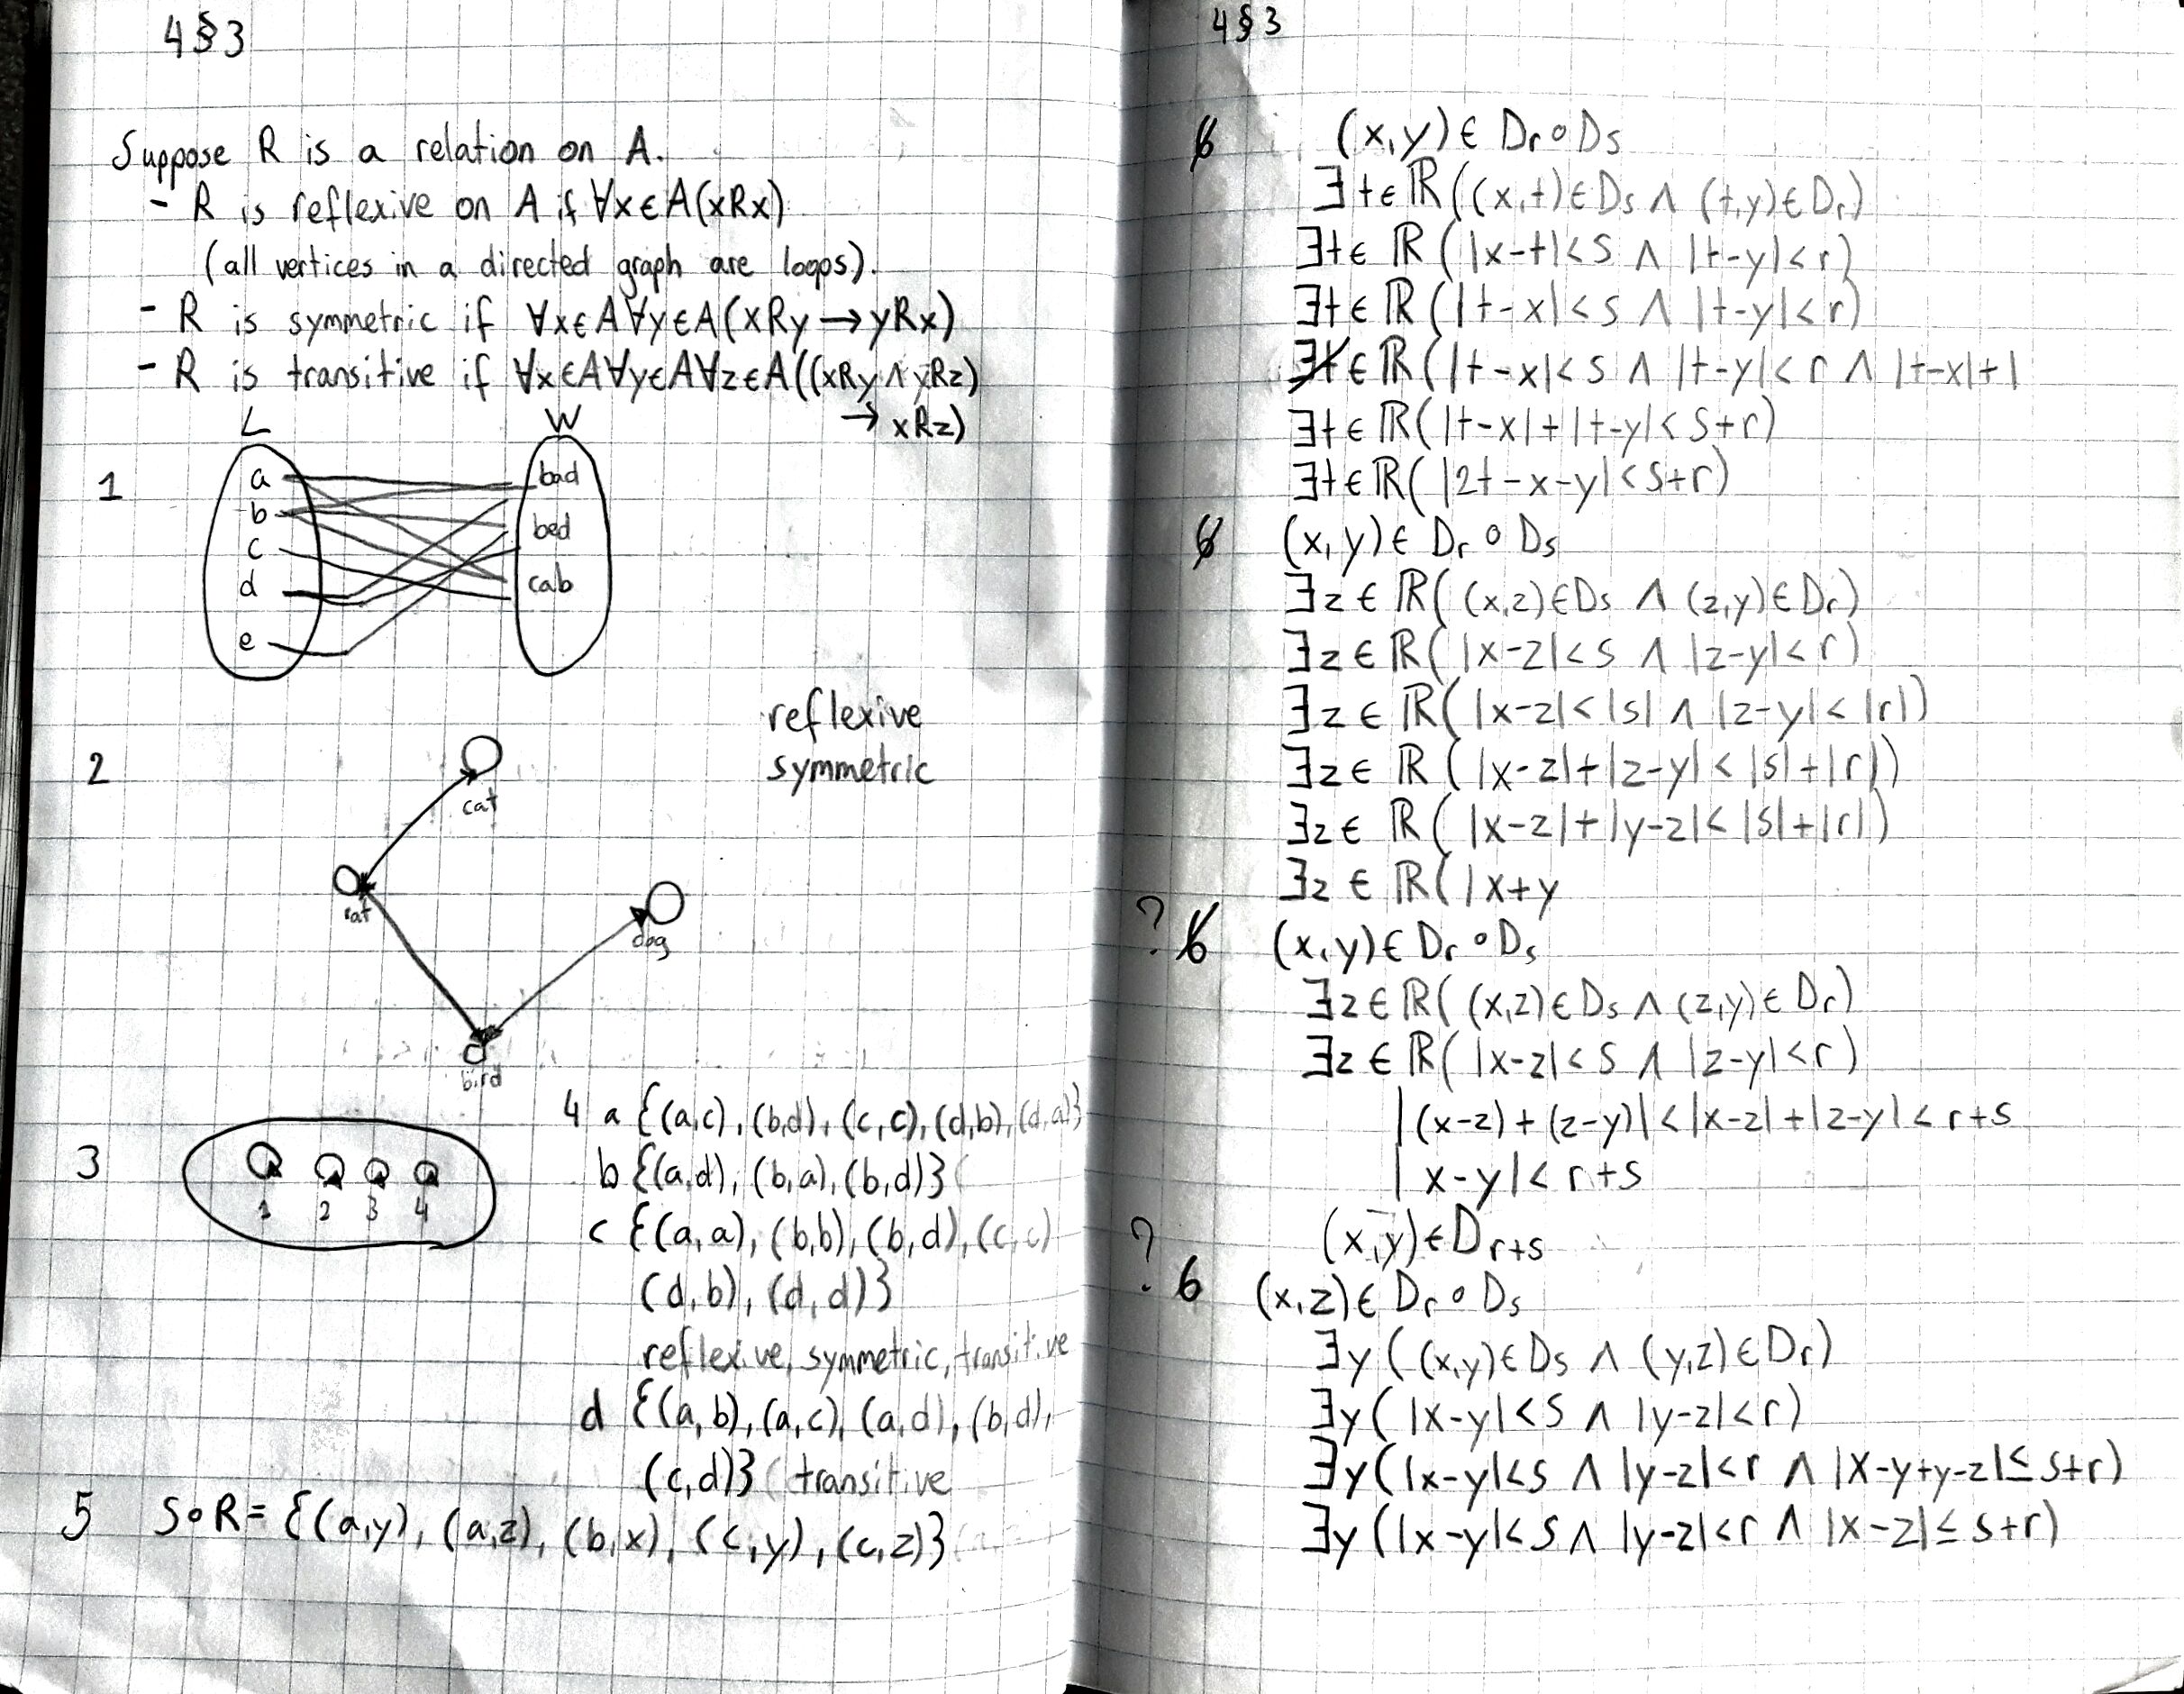 4§3
Suppose R is a relation on A.
- R is reflexive on A if ∀x∈A(xRx)
(all vertices in a directed graph are loops).
- R is symmetric if ∀x∈A∀y∈A(xRy→yRx)
- R is transitive if ∀x∈A∀y∈A∀z∈A((xRy∧yRz)
→ xRz)
L W
1
a bad
b bed
c cab
d
e
2
reflexive
symmetric
cat
rat
dog
bird
3
1 2 3 4
4 a {(a,c), (b,d), (c,c), (d,b), (d,a)}
b {(a,d), (b,a), (b,d)}
c {(a,a), (b,b), (b,d), (c,c)
(d,b), (d,d)}
reflexive, symmetric, transitive
d {(a,b), (a,c), (a,d), (b,d),
(c,d)} transitive
5 S∘R = {(a,y), (a,z), (b,x), (c,y), (c,z)}
4§3
6 (x,y)∈ Dr∘Ds
∃t∈ℝ((x,t)∈Ds ∧ (t,y)∈Dr)
∃t∈ℝ(|x-t|<s ∧ |t-y|<r)
∃t∈ℝ(|t-x|<s ∧ |t-y|<r)
∃t∈ℝ(|t-x|<s ∧ |t-y|<r ∧ |t-x|+|
∃t∈ℝ(|t-x|+|t-y|<s+r)
∃t∈ℝ(|2t-x-y|<s+r)
6 (x,y)∈ Dr∘Ds
∃z∈ℝ((x,z)∈Ds ∧ (z,y)∈Dr)
∃z∈ℝ(|x-z|<s ∧ |z-y|<r)
∃z∈ℝ(|x-z|<|s| ∧ |z-y|<|r|)
∃z∈ℝ(|x-z|+|z-y|<|s|+|r|)
∃z∈ℝ(|x-z|+|y-z|<|s|+|r|)
∃z∈ℝ(|x+y
? 6 (x,y)∈ Dr∘Ds
∃z∈ℝ((x,z)∈Ds ∧ (z,y)∈Dr)
∃z∈ℝ(|x-z|<s ∧ |z-y|<r)
|(x-z)+(z-y)|<|x-z|+|z-y|<r+s
|x-y|<r+s
(x,y)∈Dr+s
? 6 (x,z)∈ Dr∘Ds
∃y((x,y)∈Ds ∧ (y,z)∈Dr)
∃y(|x-y|<s ∧ |y-z|<r)
∃y(|x-y|<s ∧ |y-z|<r ∧ |x-y+y-z|≤s+r)
∃y(|x-y|<s ∧ |y-z|<r ∧ |x-z|≤s+r)